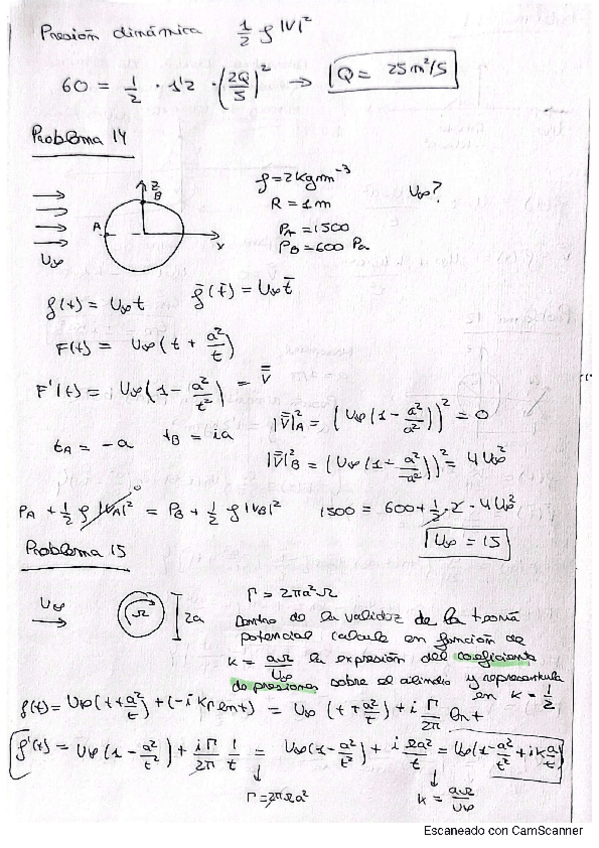 Presión dinámica 1/2 ρ|V|²
60 = 1/2 · 1'2 · (2Q/5)² → Q = 25 m²/s
Problema 14
ρ = 2 kg m⁻³
R = 1 m
U∞?
P_A = 1500
P_B = 600 Pa
z
B
A
x
U∞
f(t) = U∞ t f̄(t̄) = U∞ t̄
F(t) = U∞ (t + a²/t)
F'(t) = U∞ (1 - a²/t²) = V̿
|V̿|²_A = (U∞ (1 - a²/a²))² = 0
t_A = -a t_B = ia
|V̿|²_B = (U∞ (1 + a²/a²))² = 4U∞²
P_A + 1/2 ρ|V_A|² = P_B + 1/2 ρ|V_B|² 1500 = 600 + 1/2 · 2 · 4U∞²
0
U∞ = 15
Problema 15
U∞
Ω
2a
Γ = 2πa²Ω
Dentro de la validez de la teoría
potencial calcule en función de
k = aΩ/U∞ la expresión del coeficiente
de presiones sobre el cilindro y represéntela
en k = 1/2
f(t) = U∞ (t + a²/t) + (-i kΓ ln t) = U∞ (t + a²/t) + i Γ/2π ln t
f'(t) = U∞ (1 - a²/t²) + iΓ/2π 1/t = U∞ (1 - a²/t²) + i Ωa²/t = U∞ (1 - a²/t² + ik a/t)
↓ ↓
Γ = 2πΩa² k = aΩ/U∞
Escaneado con CamScanner